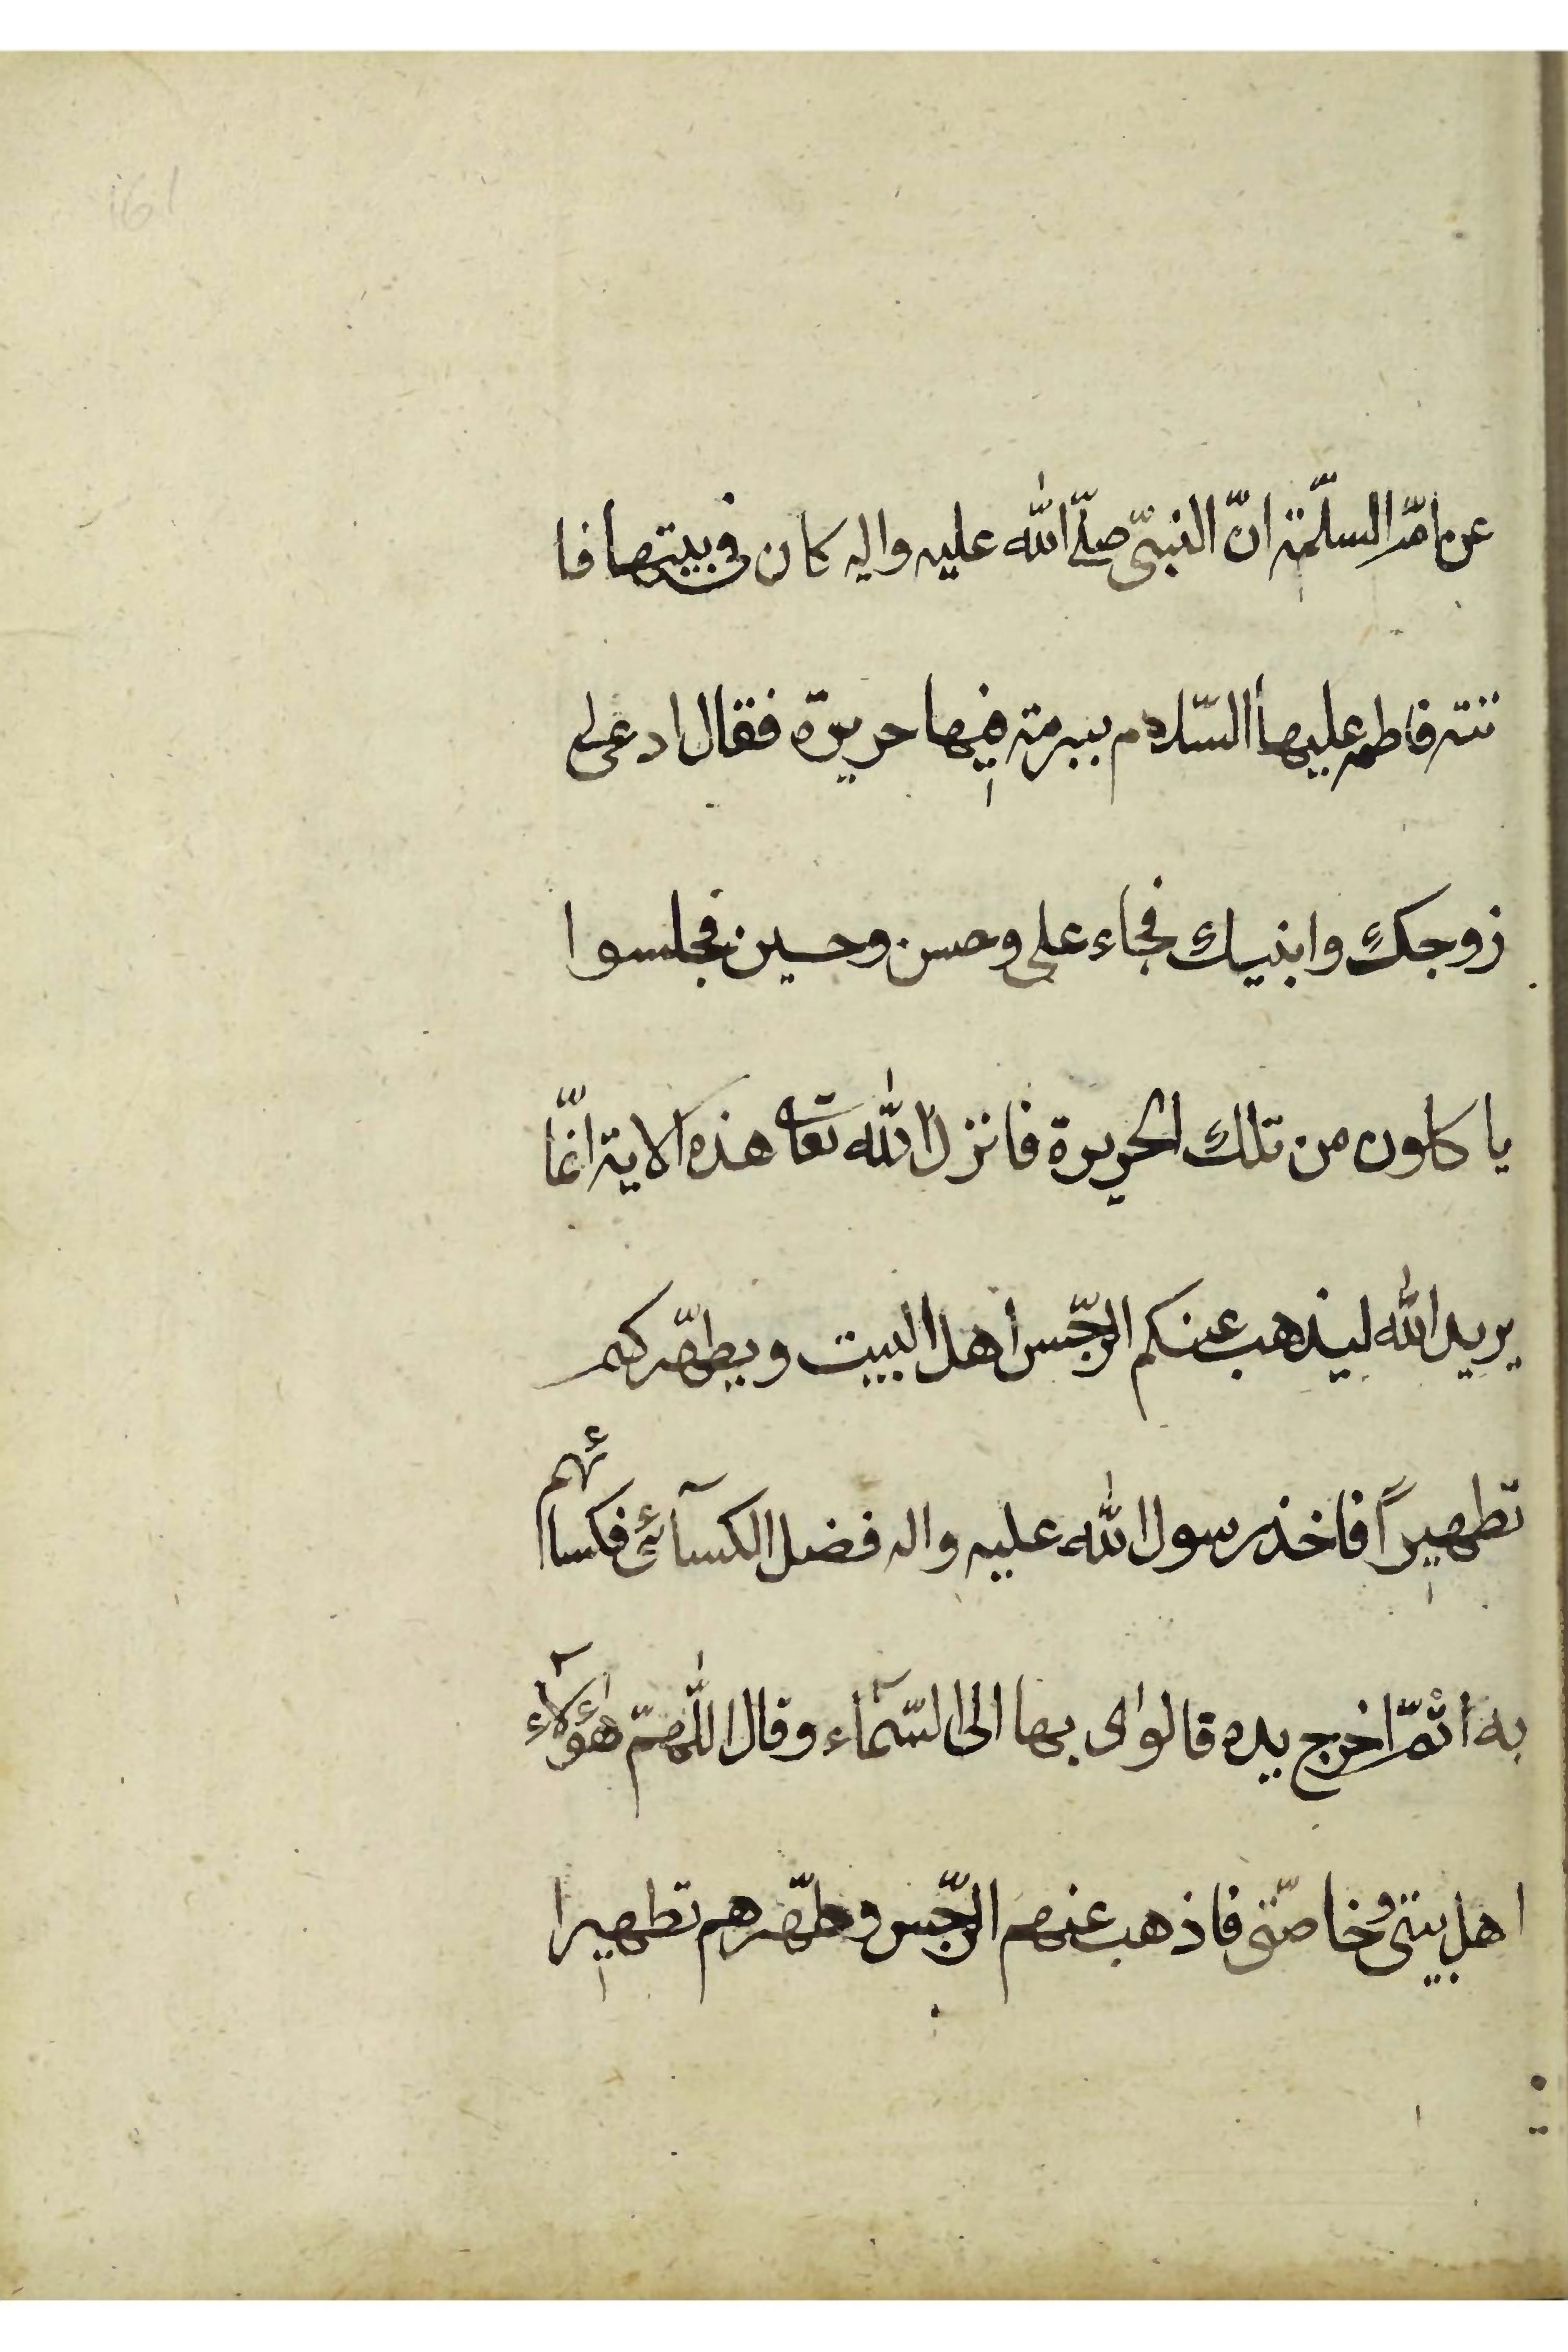 161
عن امّ السلّمة انّ النبىّ صلّى الله عليه واله كان فى بيتها فا
تته فاطمه عليها السّلام ببرمة فيها حريرة فقال ادعى لى
زوجك وابنيك فجاء على وحسن وحسين فجلسوا
ياكلون من تلك الحريرة فانزل الله تعالى هذه الاية انّما
يريد الله ليذهب عنكم الرّجس اهل البيت ويطهّركم
تطهيراً فاخذ رسول الله عليه واله فضل الكسآئى فكسائهم
به اثمّ اخرج يده قالوى بها الى السّمآء وقال اللّهمّ هؤلآء
اهل بيتى وخاصّتى فاذهب عنهم الرّجس وطهّرهم تطهيرا